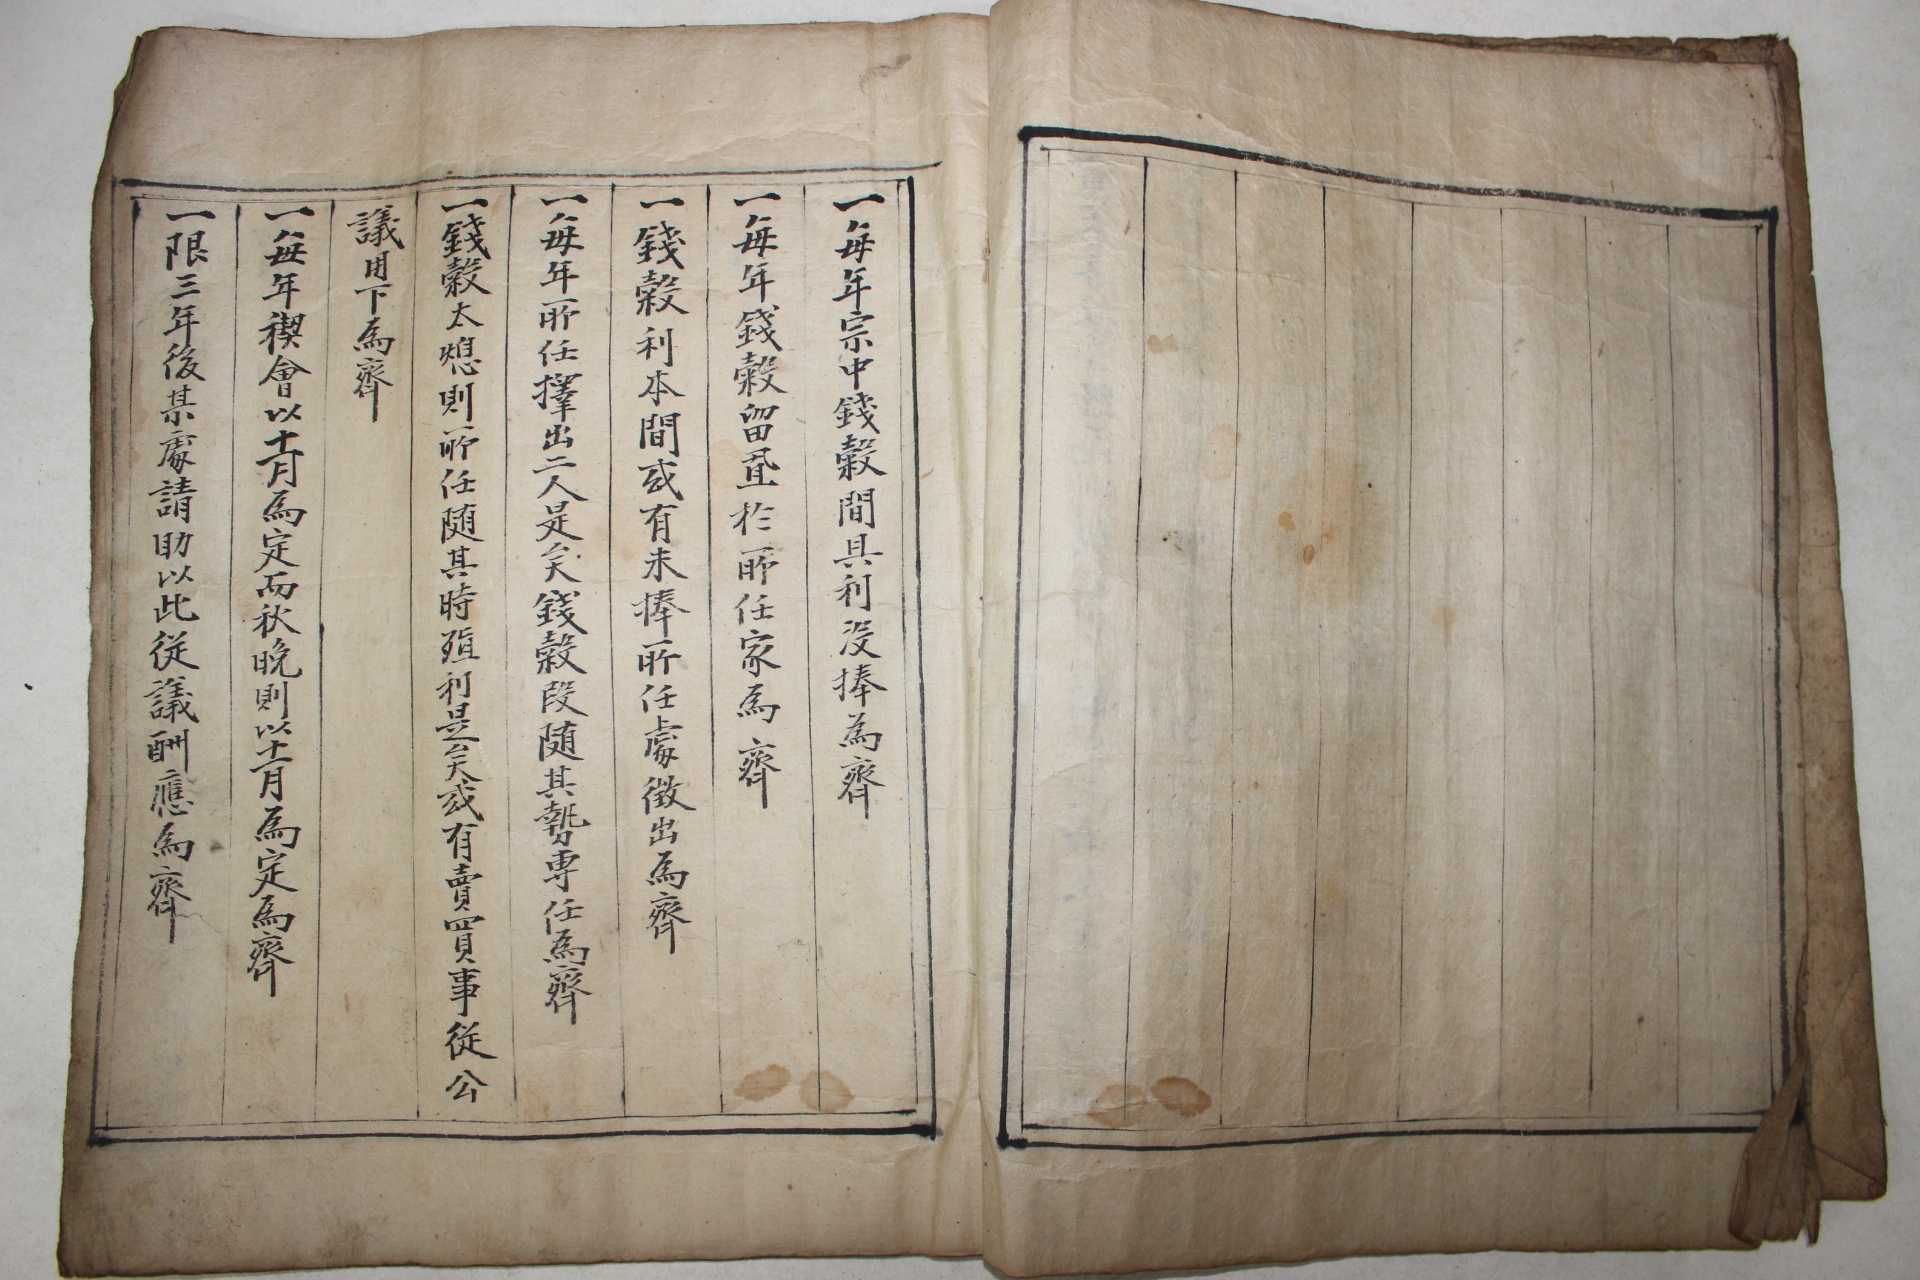 一每年宗中錢穀間具利沒捧為齊
一每年錢穀留置於所任家為齊
一錢穀利本間或有未捧所任處徵出為齊
一每年所任擇出二人是矣錢穀段随其勢専任為齊
一錢穀太熄則所任随其時殖利是矣或有賣買事從公
議用下為齊
一每年禊會以十月為定而秋晚則以十一月為定為齊
一限三年後某處請助以此從議酬應為齊